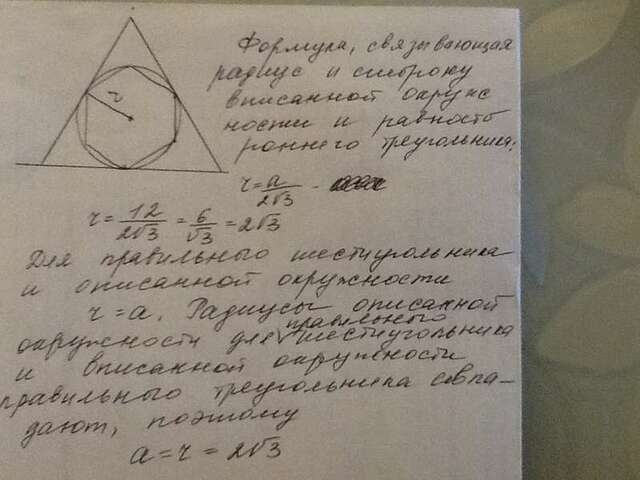 r
Формула, связывающая
радиус и сторону
вписанной окруж
ности и равносто
роннего треугольника:
r = a/2√3
r = 12/2√3 = 6/√3 = 2√3
Для правильного шестиугольника
и описанной окружности
r = a. Радиусы описанной
окружности для правильного шестиугольника
и вписанной окружности
правильного треугольника совпа-
дают, поэтому
a = r = 2√3